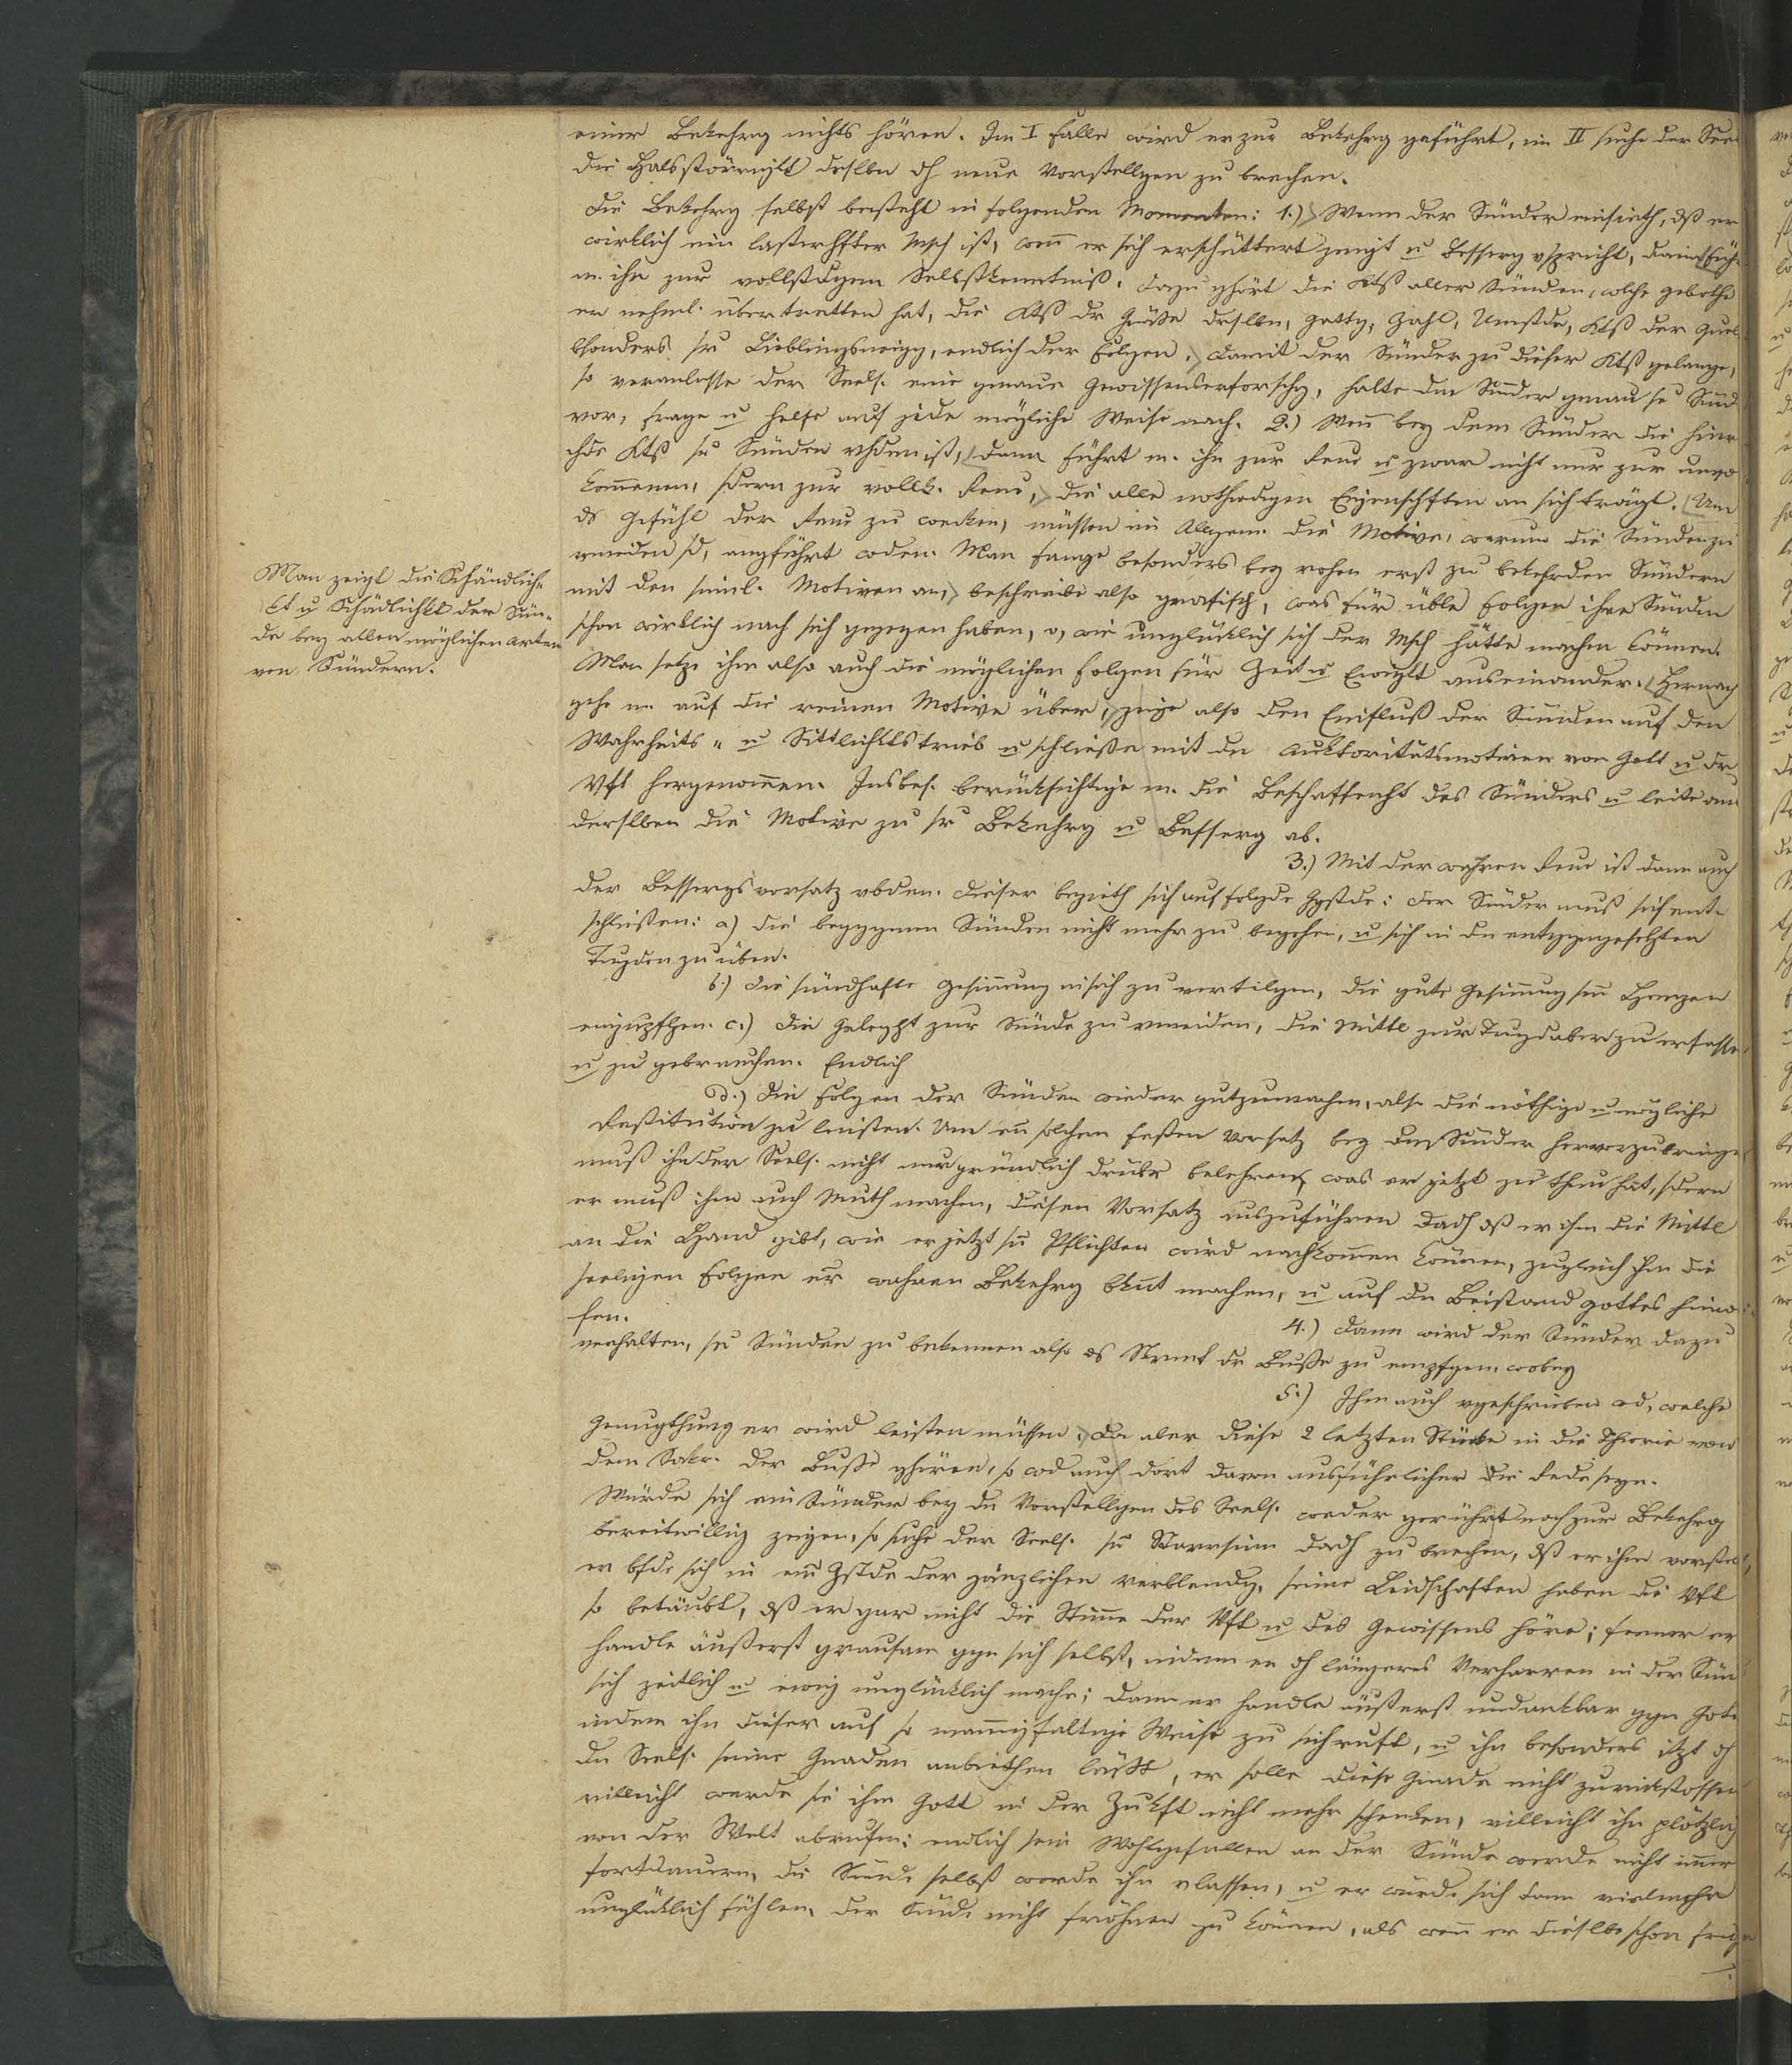 einer Bekehrg nichts hören. Im I Falle wird er zur Bekehrg geführt, im II suche der See
die Halsstörrigkt dslben dh neue Vorstellgen zu brechen.
Die Bekehrg selbst besteht in folgenden Momenten: 1.) Wenn der Sünder einsieth, dß er
wirklich ein lasterhfter Msch ist, wenn er sich erschüttert zeigt u Besserg vspricht, dann füh
m. ihn zur vollstdgen Selbstkenntniß. Dazu ghört die Ktß aller Sünden, welche gebothe
er nehml. übertretten hat, die Ktß dr Größe drslben, Gattg, Zahl, Umstde, Ktß der Quel
bsonders sr Lieblingsneigg, endlich der Folgen. Damit der Sünder zu dieser Ktß gelange,
so veranlasse der Seels. eine genaue Gewissenserforschg, halte den Sünder genau se Sünd
vor, frage u helfe auf jede mögliche Weise nach. 2.) Wenn bey dem Sünder die hinr
chde Ktß sr Sünden vhden ist, dann führt m. ihn zur Reue u zwar nicht nur zur unvo
kommenen, sdern zur vollk. Reue, die alle nothwdigen Eigenschften an sich trägt. Um
ds Gefühl der Reue zu wecken, müssen im Allgem. die Motive, warum die Sünden zu
vmeiden sd, angführt wden. Man fange besonders bey rohen erst zu bekehrden Sündern
mit den sinnl. Motiven an, beschreibe also grafisch, was für üble Folgen ihre Sünden
schon wirklich nach sich gezogen haben, o, wie unglücklich sich der Msch hätte machen können.
Man setze ihm also auch die möglichen Folgen für Zeit u Ewigkt auseinander. Hernach
gehe m. auf die reinen Motive über, zeige also den Einfluß der Sünden auf den
Wahrheits- u Sittlichktstrieb u schließe mit dn Auktoritätsmotiven von Gott u dr
Vft hergenommen. Insbes. berücksichtige m. die Beschaffenht des Sünders u leite aus
derslben die Motive zu sr Bekehrg u Besserg ab.
Man zeigt die Schändlich-
kt u Schädlichkt der Sün-
de bey allen möglichen Arten
von Sündern.
3.) Mit der wahren Reue ist dann auch
der Bessergsvorsatz vbden. Dieser bezieth sich auf folgde Ggstde: der Sünder muß sich ent-
schließen: a) die beggnen Sünden nicht mehr zu begehen, u sich in dn entggngesetzten
Tugden zu üben.
b.) die sündhafte Gesinnung in sich zu vertilgen, die gute Gesinnung sm Herzen
einzupflzen. c.) die Geleght zur Sünde zu vmeiden, die Mittl zur Tugd aber zu erfasse
u zu gebrauchen. Endlich
d.) die Folgen der Sünden wieder gutzumachen, also die nöthige u mögliche
Restitution zu leisten. Um en solchen festen Vorsatz bey dem Sünder hervorzubringe
muß ihn der Seels. nicht nur gründlich drübr belehren, was er jetzt zu thun hat, sdern
er muß ihm auch Muth machen, diesen Vorsatz auszuführen dadh dß er ihm die Mittl
an die Hand gibt, wie er jetzt sn Pflichten wird nachkommen können, zugleich ihm die
seeligen Folgen er wahren Bekehrg bknt machen, u auf dn Beistand Gottes hinw
sen.
4.) dann wird der Sünder dazu
verhalten, se Sünden zu bekennen also ds Skrmt dr Buße zu empfgen, wobey
5.) Ihm auch vgeschrieben wd, welche
Genugthung er wird leisten müssen. Da aber diese 2 letzten Stücke in die Theorie von
dem Sakr. der Buße ghören, so wd auch dort davon ausführlicher die Rede seyn.
Würde sich ein Sünder bey dn Vorstellgen des Seels. weder gerührt noch zur Bekehrg
bereitwillig zeigen, so suche der Seels. sn Starrsinn dadh zu brechen, dß er ihm vorstel
er bfde sich in em Zstde der gänzlichen Verblendg, seine Leidschaften haben die Vft
so betäubt, dß er gar nicht die Stimme der Vft u des Gewissens höre; ferner er
handle äußerst grausam ggn sich selbst, indem er dh längeres Verharren in der Sün
sich zeitlich u ewig unglücklich mache; dann er handle äußerst undankbar ggn Gott
indem ihn dieser auf so mannigfaltige Weise zu sich ruft, u ihn besonders itzt dh
dn Seels. seine Gnaden anbiethen läßt, er solle diese Gnade nicht zurückstossen
villeicht werde sie ihm Gott in der Zukft nicht mehr schenken, villeicht ihn plötzlich
von der Welt abrufen; endlich sein Wohlgefallen an der Sünde werde nicht immer
fortdauern, die Sünde selbst werde ihn vlassen, u er würde sich dann vielmehr
unglücklich fühlen, der Sünde nicht fröhnen zu können, als wenn er dieslbe schon